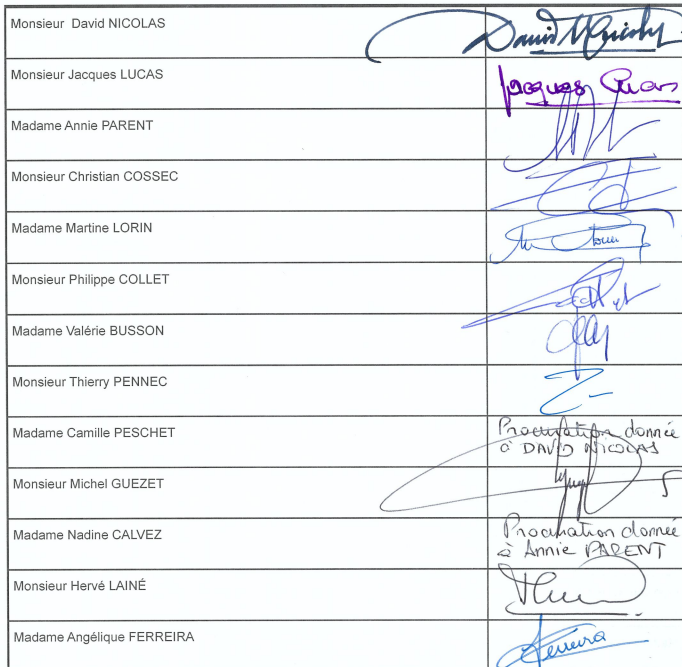 Monsieur David NICOLAS
Monsieur Jacques LUCAS
Jacques Lucas
Madame Annie PARENT
Monsieur Christian COSSEC
Madame Martine LORIN
Monsieur Philippe COLLET
Madame Valérie BUSSON
Monsieur Thierry PENNEC
Madame Camille PESCHET
Procuration donnée
à DAVID NICOLAS
Monsieur Michel GUEZET
Madame Nadine CALVEZ
Procuration donnée
à Annie PARENT
Monsieur Hervé LAINÉ
Madame Angélique FERREIRA